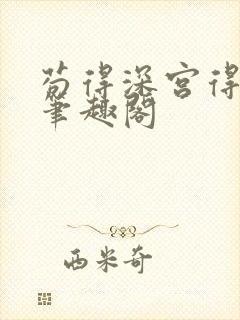 苟得深宫得
笔趣阁
西米奇